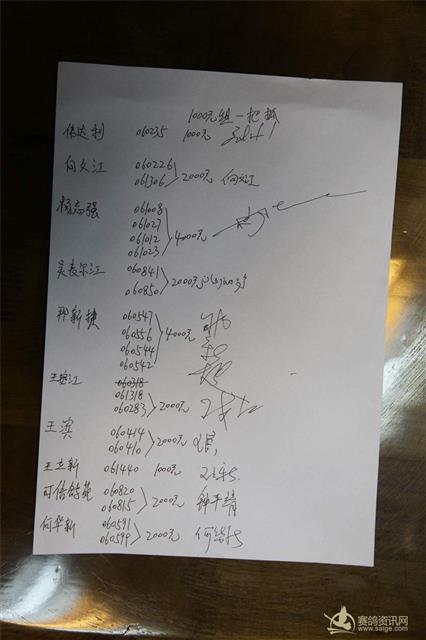 1000元组一把抓
伟达利 060235 1000元
向文江 060226 2000元 向文江
061306
杨志强 061008 4000元
061027
061012
061023
吴表尔江 060841 2000元
060850
邢新捷 060547 4000元
060556
060544
060542
王 江 060318
061318 2000元
060283
王滨 060414 2000元
060410
王立新 061440 1000元
可信鸽苑 060820 2000元
060815
何华新 060591 2000元
060599
赛鸽资讯网
www.saige.com